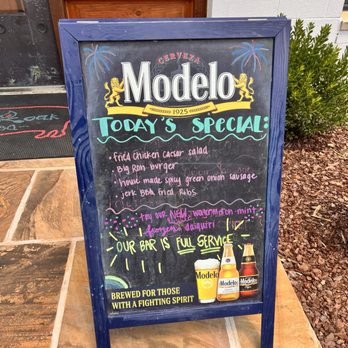 MODELO
CERVEZA
Modelo
1925
TODAY'S SPECIAL:
• Fried Chicken caesar salad
• Big Ron burger
• house made spicy green onion sausage
• Jerk BBQ Fried Ribs
try our NEW watermelon mint
frozen daiquiri
OUR BAR IS FULL SERVICE
Modelo
Modelo
Modelo
BREWED FOR THOSE
WITH A FIGHTING SPIRIT